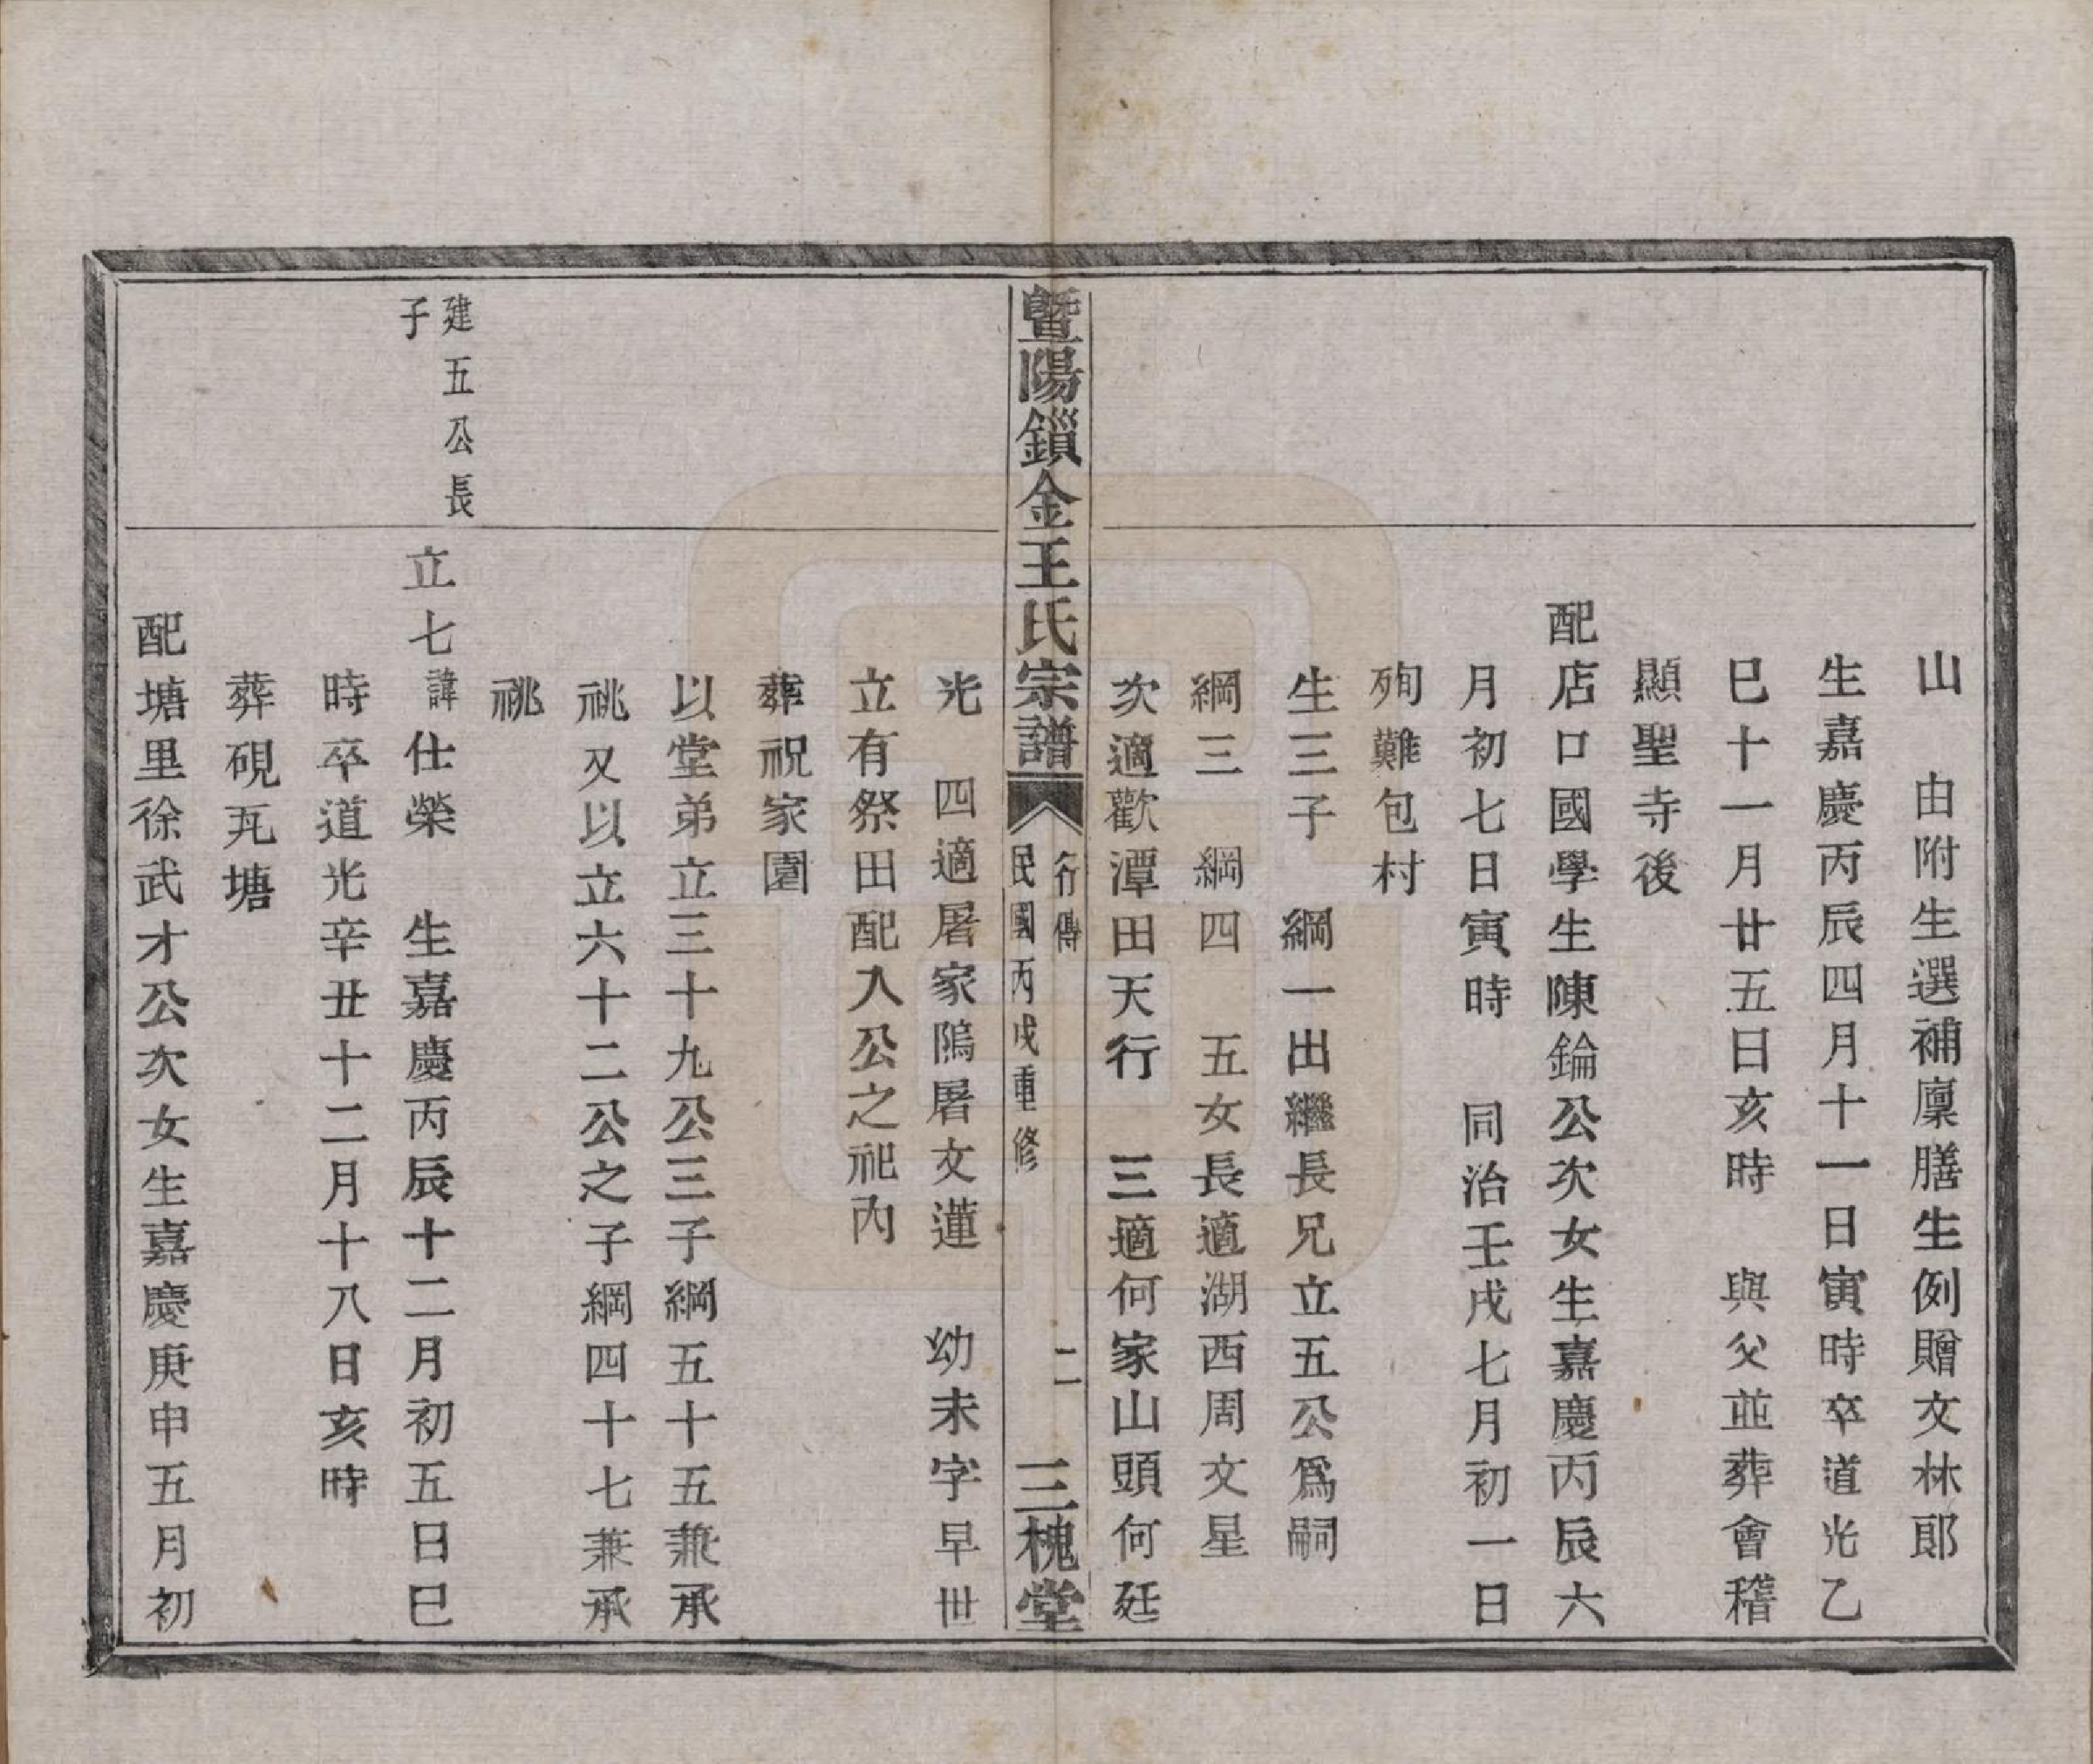 山　由附生選補廩膳生例贈文林郎
生嘉慶丙辰四月十一日寅時卒道光乙
巳十一月廿五日亥時　與父並葬會稽
顯聖寺後
配店口國學生陳錀公次女生嘉慶丙辰六
月初七日寅時　同治壬戌七月初一日
殉難包村
生三子　綱一出繼長兄立五公爲嗣
綱三　綱四　五女長適湖西周文星
次適歡潭田天行　三適何家山頭何廷
暨陽鎖金王氏宗譜
行傳
民國丙戌重修
二
三槐堂
光　四適屠家隖屠文蓮　幼未字早世
立有祭田配入公之祀內
葬祝家園
以堂弟立三十九公三子綱五十五兼承
祧又以立六十二公之子綱四十七兼承
祧
建五公長
子
立七諱仕榮　生嘉慶丙辰十二月初五日巳
時卒道光辛丑十二月十八日亥時
葬硯瓦塘
配塘里徐武才公次女生嘉慶庚申五月初